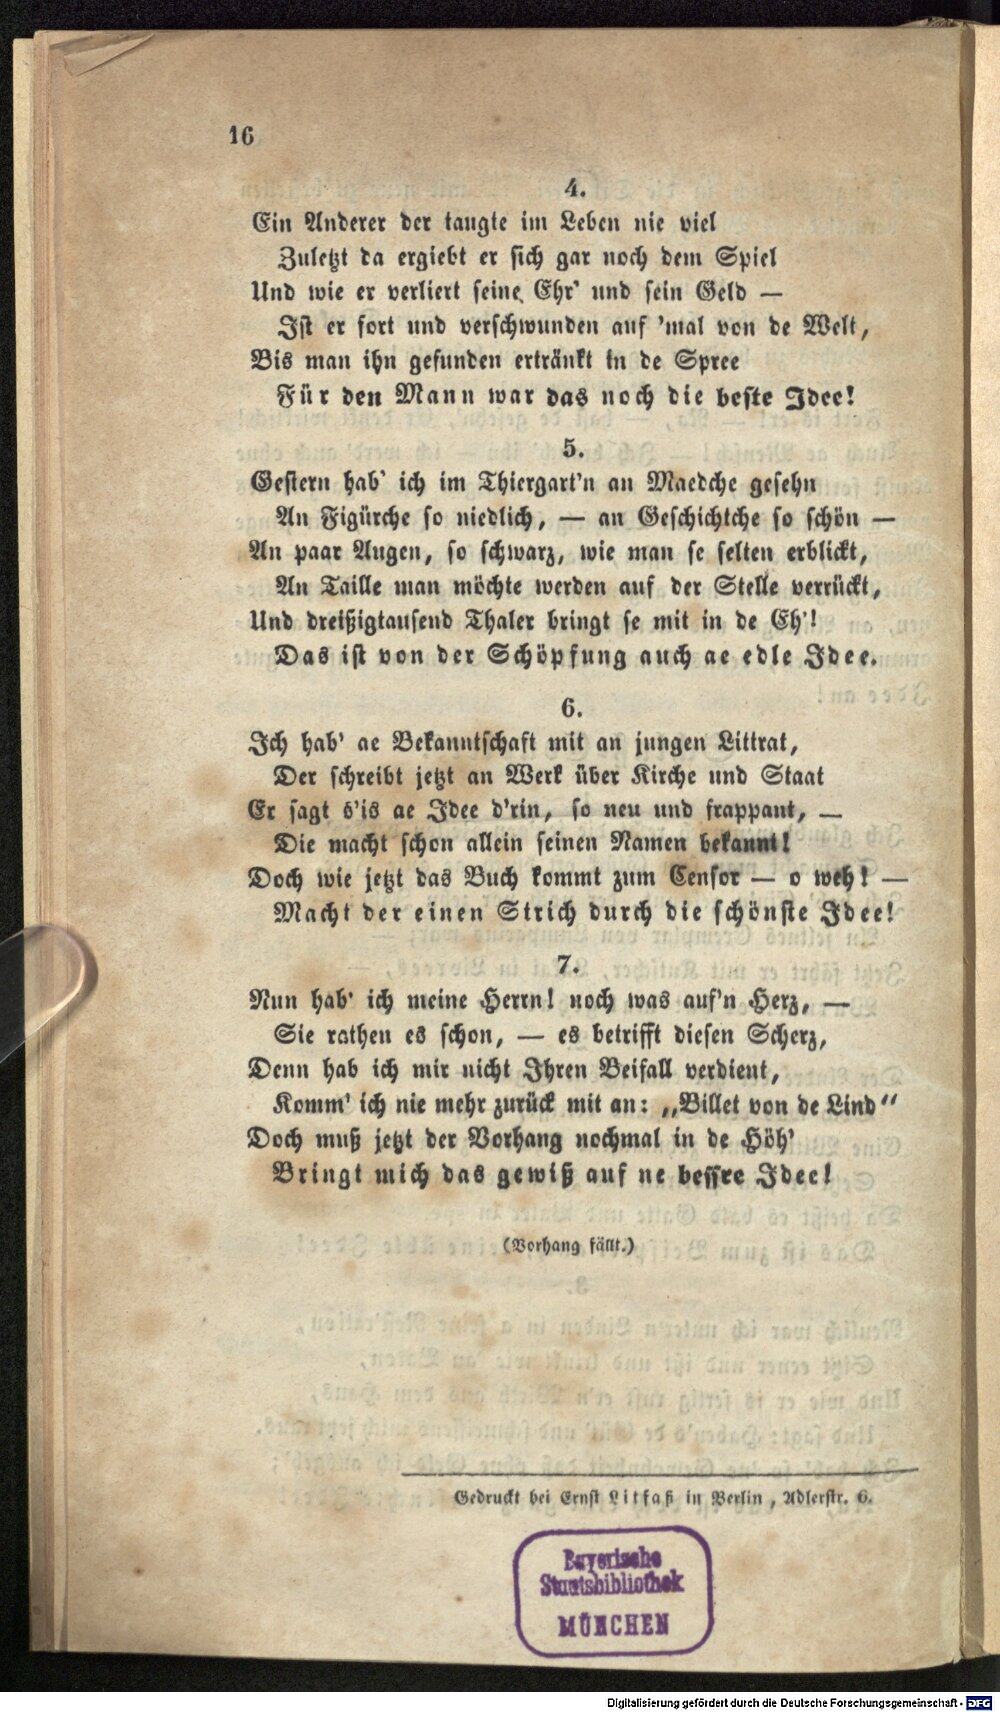 16
4.
Ein Anderer der taugte im Leben nie viel
Zuletzt da ergiebt er sich gar noch dem Spiel
Und wie er verliert seine Ehr' und sein Geld —
Ist er fort und verschwunden auf 'mal von de Welt,
Bis man ihn gefunden ertränkt in de Spree
Für den Mann war das noch die beste Idee!
5.
Gestern hab' ich im Thiergart'n an Maedche gesehn
An Figürche so niedlich, — an Geschichtche so schön —
An paar Augen, so schwarz, wie man se selten erblickt,
An Taille man möchte werden auf der Stelle verrückt,
Und dreißigtausend Thaler bringt se mit in de Eh'!
Das ist von der Schöpfung auch ae edle Idee.
6.
Ich hab' ae Bekanntschaft mit an jungen Littrat,
Der schreibt jetzt an Werk über Kirche und Staat
Er sagt s'is ae Idee d'rin, so neu und frappant, —
Die macht schon allein seinen Namen bekannt!
Doch wie jetzt das Buch kommt zum Censor — o weh! —
Macht der einen Strich durch die schönste Idee!
7.
Nun hab' ich meine Herrn! noch was auf'n Herz, —
Sie rathen es schon, — es betrifft diesen Scherz,
Denn hab ich mir nicht Ihren Beifall verdient,
Komm' ich nie mehr zurück mit an: „Billet von de Lind“
Doch muß jetzt der Vorhang nochmal in de Höh'
Bringt mich das gewiß auf ne bessre Idee!
(Vorhang fällt.)
Gedruckt bei Ernst Litfaß in Berlin, Adlerstr. 6.
Bayerische
Staatsbibliothek
MÜNCHEN
Digitalisierung gefördert durch die Deutsche Forschungsgemeinschaft - DFG